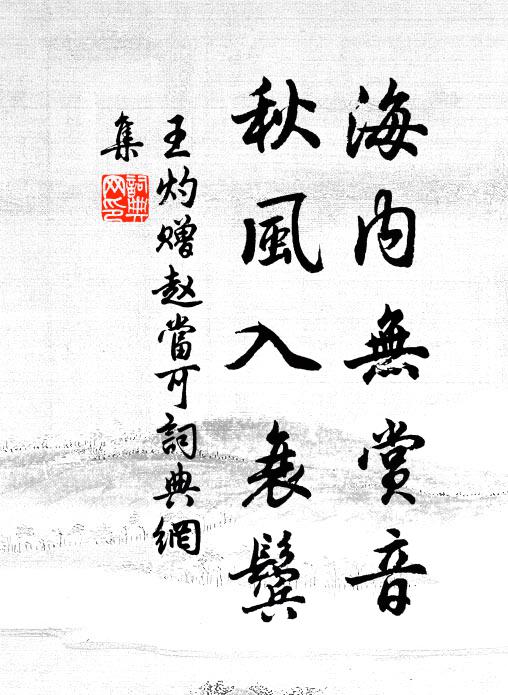 海内無賞音
秋風入衰鬢
王灼赠赵當可詞典網
集
詞典
网印